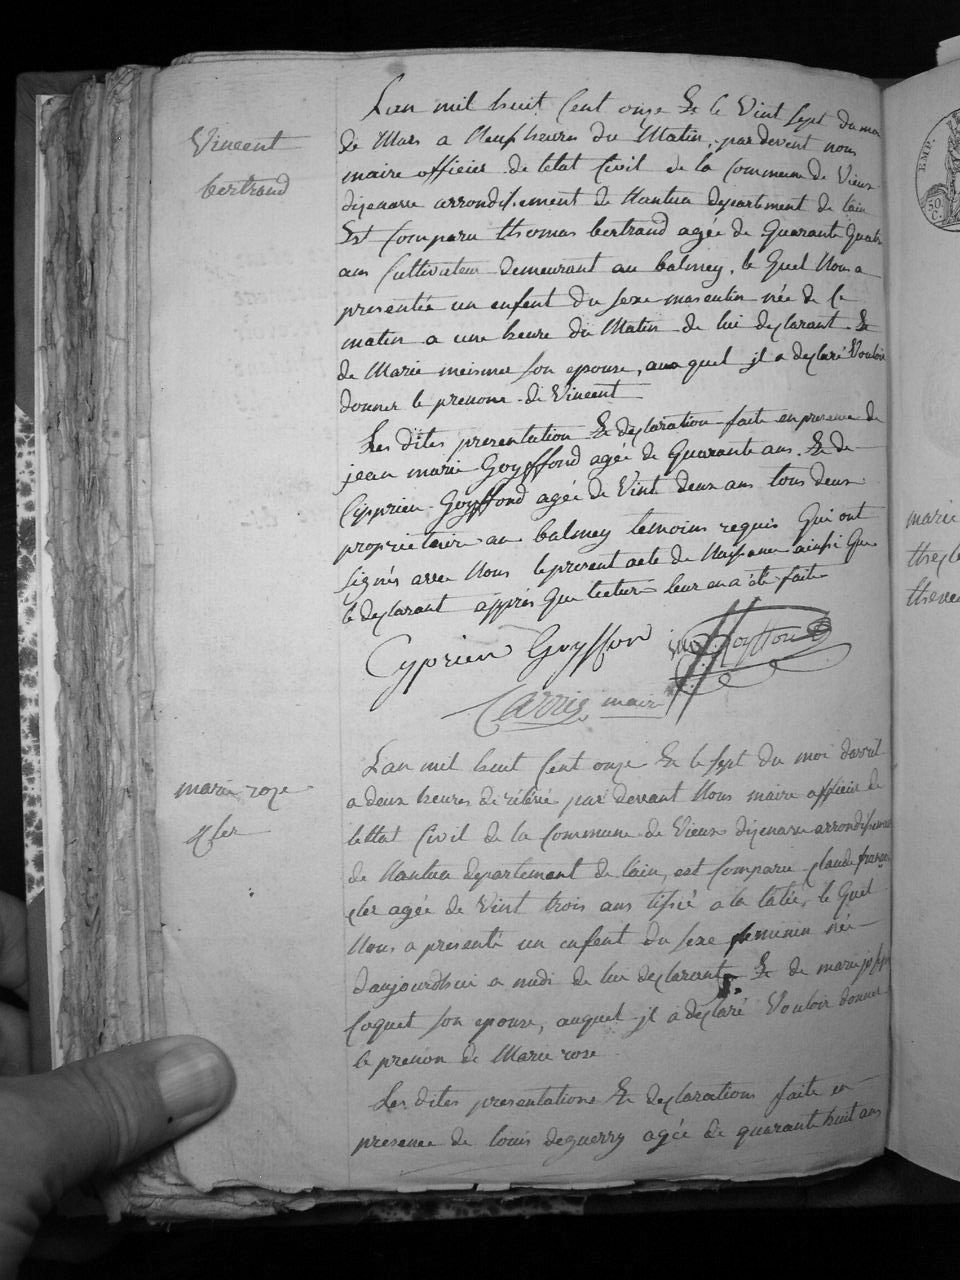 Vincent
bertrand
Lan mil huit Cent onze & le Vint Sept du moi
de Mars a Neuf heures du Matin, par devent nous
maire officier de letat Civil de la Commune de Vieux
dizenave arrondissement de Nantua departement de lain
Est Comparu thomas bertrand agée de Quarante Quatre
ans Cultivateur demeurant au balmey, le Quel Nous a
presentée un enfent du sexe masculin née de Ce
matin a une heure du Matin de lui declarant &
de Marie son epouse, auquel jl a declaré Vouloir
donner le prenom de Vincent
Les dites presentation & declaration faite en presence de
jean marie Goyffond agée de Quarante ans & de
Cyprien Goyffond agée de Vint deux ans tous deux
proprietaire au balmey temoins requis Qui ont
signés avec Nous le present acte de Naissance ainsi Que
le declarant apprés Que lecture leur en a été faite
Cyprien Goyffon Goyffond
Carrig maire
marie roze
fler
Lan mil huit Cent onze & le sept du moi davril
a deux heures de relevé par devant Nous maire officier de
lettat Civil de la Commune de Vieux dizenave arrondissement
de Nantua departement de lain, est Comparu Claude françois
fler agée de Vint trois ans tissié a la le Quel
Nous a presenté un enfent du sexe feminin née
daujourdhui a midi de lui declarant & de marie
Coquet son epouse, auquel jl a declaré Vouloir donner
le prenon de Marie rose
Les dites presentations & declarations faite en
presence de louis deguerry agée de quarante huit ans
EMP.
50
C.
marie